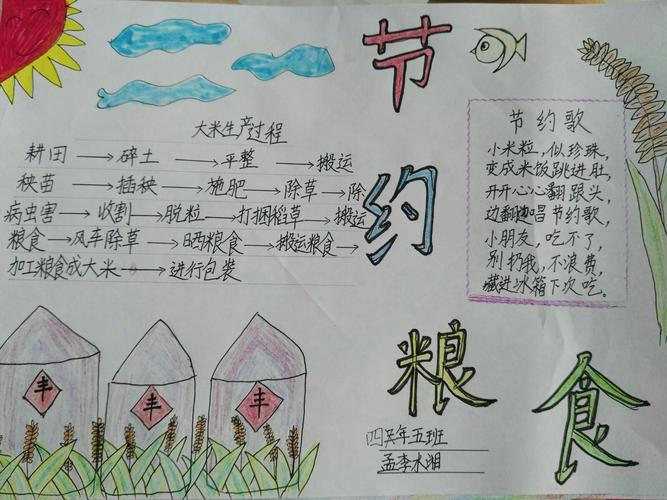 节约粮食
大米生产过程
耕田→碎土→平整→搬运
秧苗→插秧→施肥→除草→除
病虫害→收割→脱粒→打捆稻草→搬运
粮食→风车除草→晒粮食→搬运粮食→
加工粮食成大米→进行包装
节约歌
小米粒,似珍珠,
变成米饭跳进肚,
开开心心翻跟头,
边翻边唱节约歌,
小朋友,吃不了,
别扔我,不浪费,
藏进冰箱下次吃。
丰
丰
丰
四年五班
孟李水湘